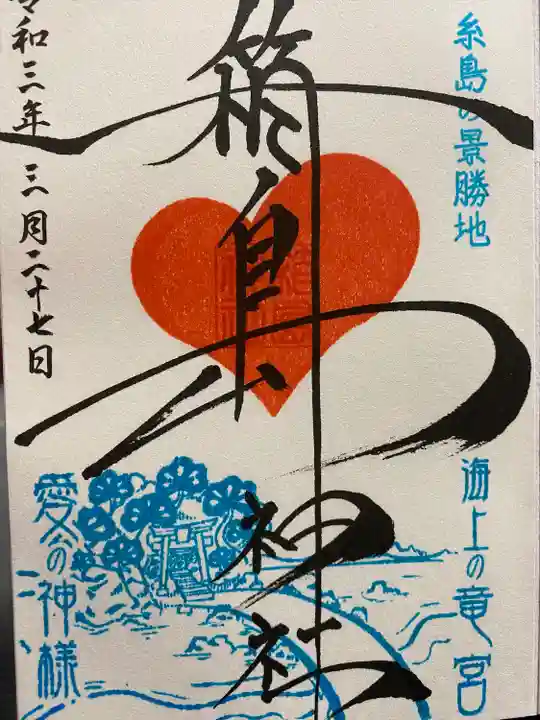 糸島の景勝地
海上の竜宮
箱島神社
愛の神様
令和三年 三月二十七日